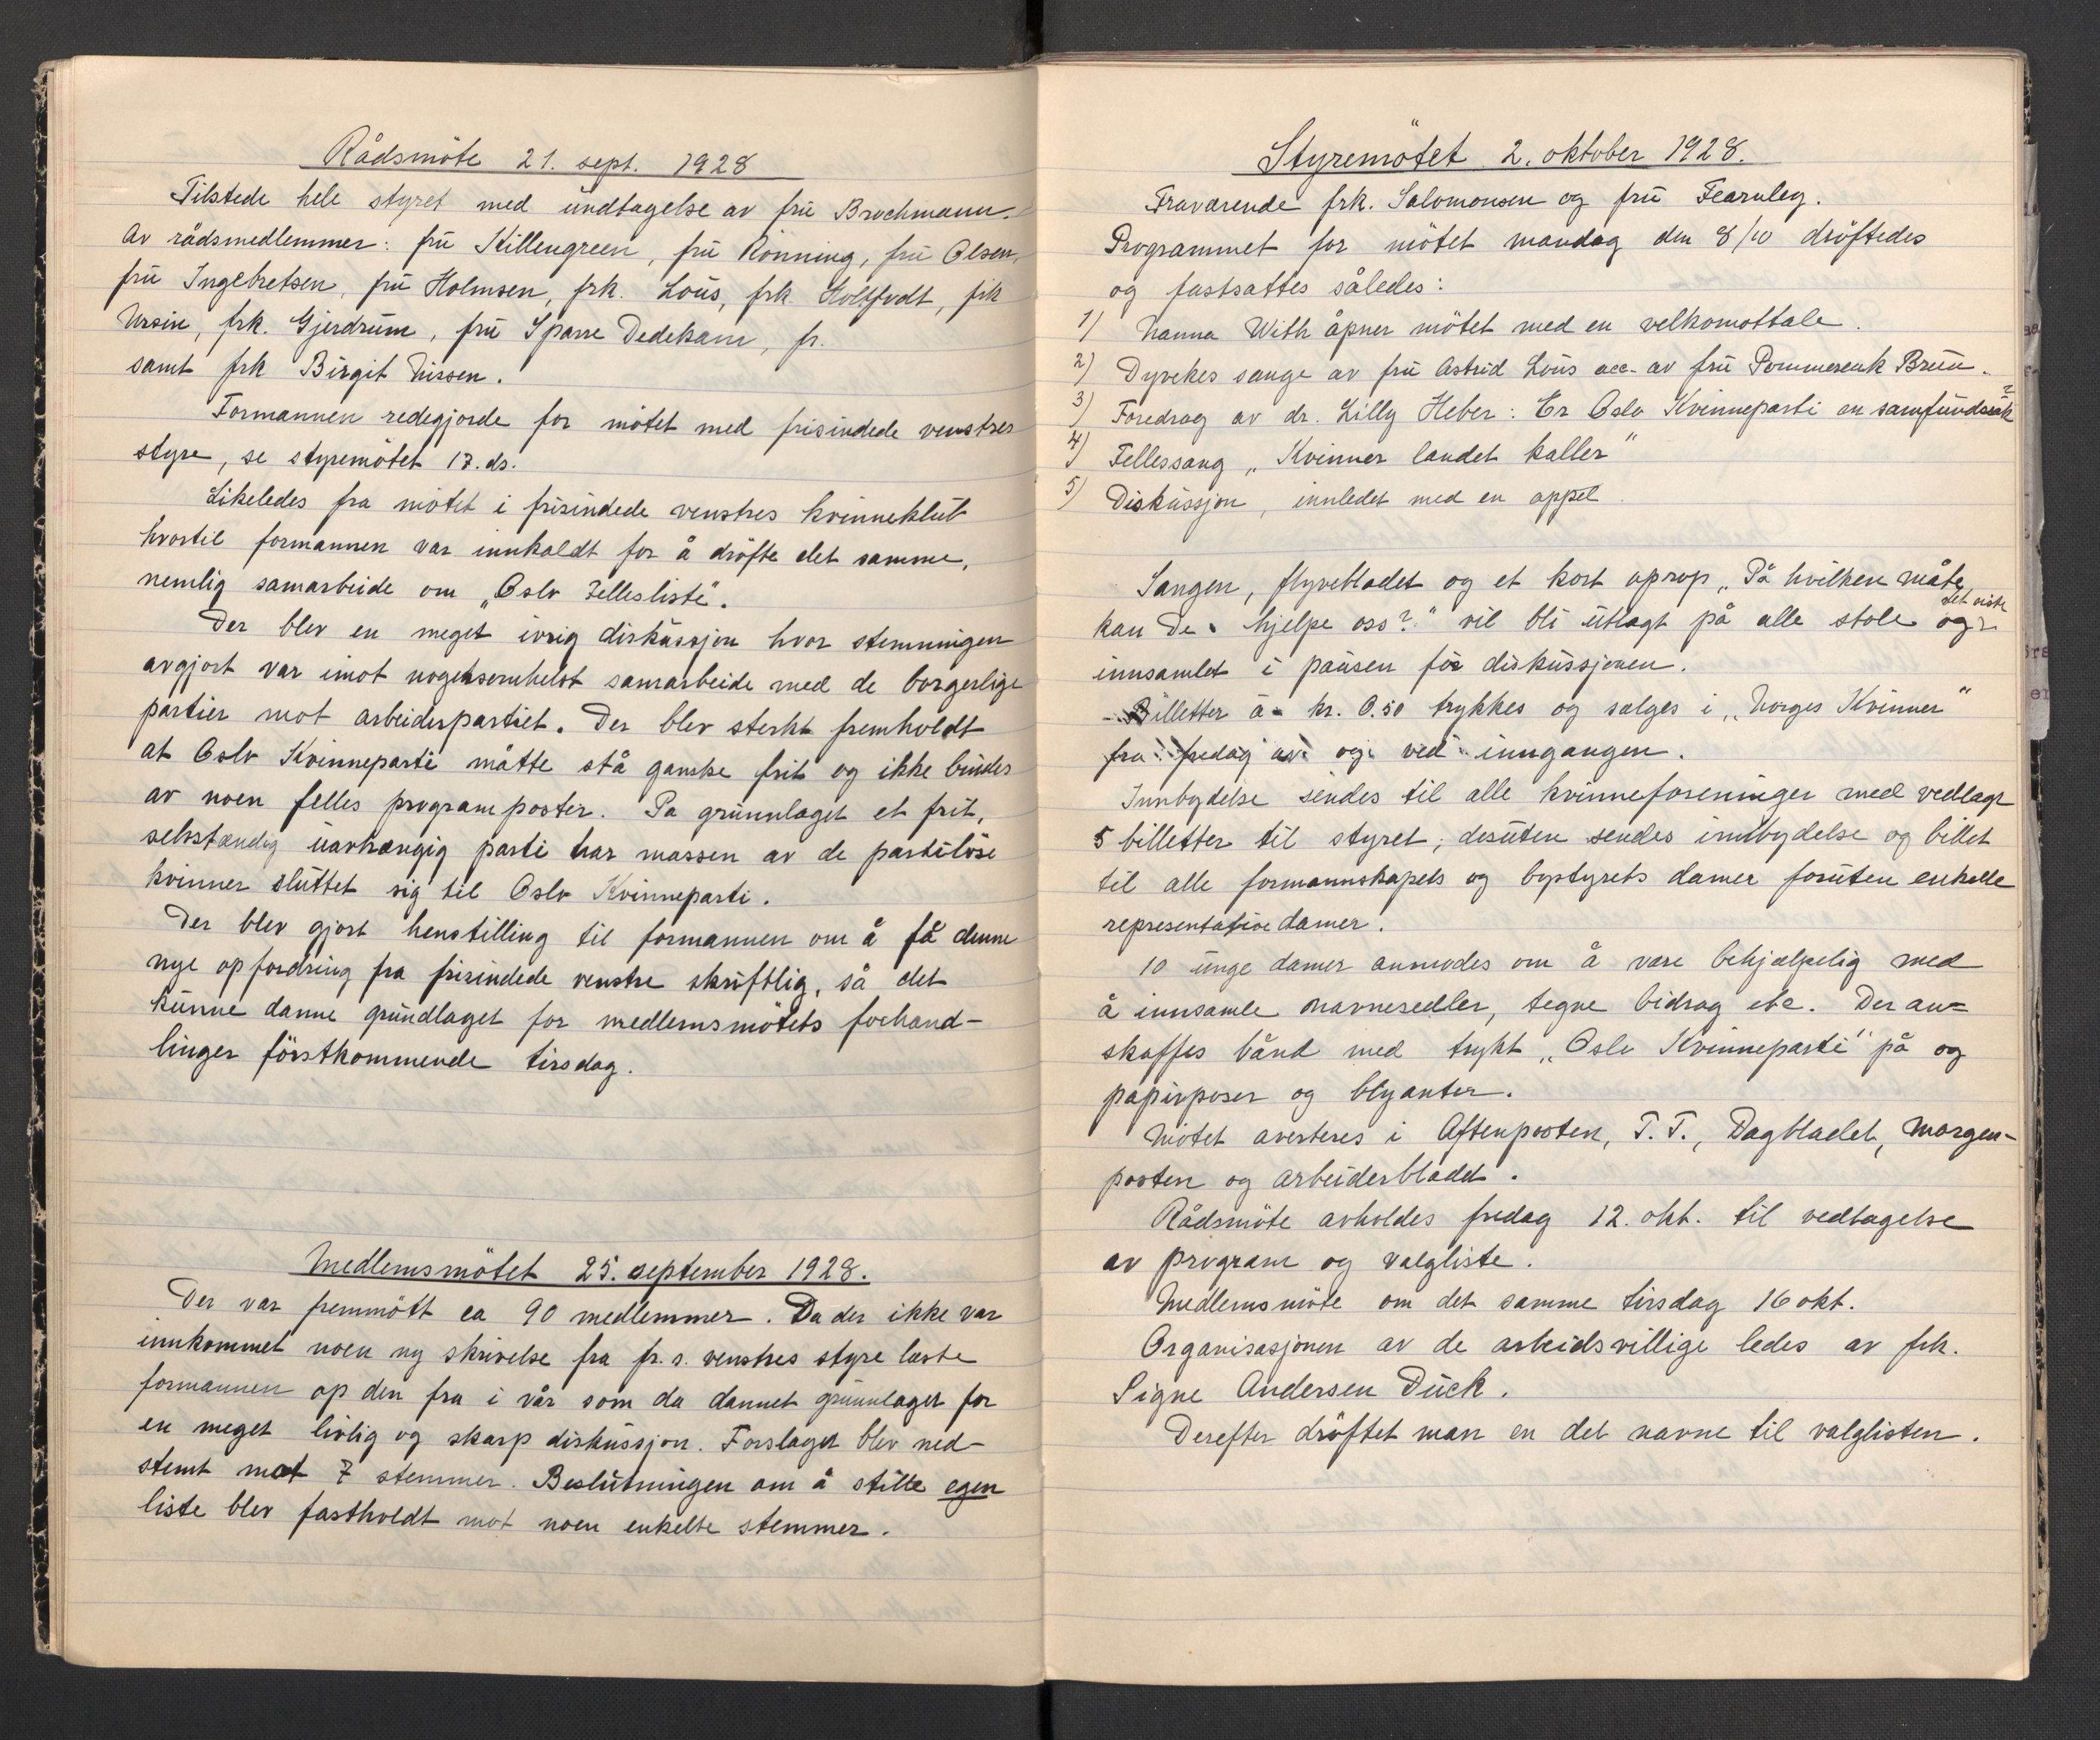 Rådsmöte 21. sept. 1928
Tilstede hele styret med undtagelse av fru Brochmann.
Av rådsmedlemmer: fru Killengreen, fru Rönning, fru Olsen,
fru Ingebretsen, fru Holmsen, frk. Lous, frk Holtfodt, frk
Ursin, frk. Gjerdrum, fru Sparre Dedekam, fr.
samt frk Birgit Nissen.
Formannen redegjorde for mötet med frisindede venstres
styre, se styremötet 17. ds.
Likeledes fra mötet i frisindede venstres kvinneklub
hvortil formannen var innkaldt for å dröfte det samme,
nemlig samarbeide om „Oslo Fellesliste".
Der blev en meget ivrig diskussjon hvor stemningen
avgjort var imot nogetsomhelst samarbeide med de borgerlige
partier mot arbeiderpartiet. Der blev sterkt fremholdt
at Oslo Kvinneparti måtte stå ganske frit og ikke bindes
av noen felles programposter. Pa grunnlaget et frit,
selvstændig uavhængig parti har massen av de partilöse
kvinner sluttet sig til Oslo Kvinneparti.
Der blev gjort henstilling til formannen om å få denne
nye opfordring fra frisindede venstre skriftlig, så det
kunne danne grundlaget for medlemsmötets forhand-
linger förstkommende tirsdag.
Medlemsmötet 25. september 1928.
Der var fremmött ca 90 medlemmer. Da der ikke var
innkommet noen ny skrivelse fra fr. s. venstres styre læste
formannen op den fra i vår som da dannet grunnlaget for
en meget livlig og skarp diskussjon. Forslaget blev ned-
stemt mot 7 stemmer. Beslutningen om å stille egen
liste blev fastholdt mot noen enkelte stemmer.
Styremötet 2. oktober 1928.
Fraværende frk. Salomonsen og fru Fearnley.
Programmet for mötet mandag den 8/10 dröftedes
og fastsattes således:
1) Nanna With åpner mötet med en velkomsttale.
2) Dyvekes sange av fru Astrid Lous acc. av fru Pommerenk Bruu.
3) Foredrag av dr. Lilly Heber: Er Oslo Kvinneparti en samfundssak?
4) Fellessang „Kvinner landet kaller"
5) Diskussjon, innledet med en appel.
Sangen, flyvebladet og et kort oprop „På hvilken måte
kan De hjelpe oss?" vil bli utlagt på alle stole og det siste
innsamlet i pausen för diskussjonen.
Billetter à kr. 0.50 trykkes og sælges i „Norges Kvinner"
fra fredag av og ved inngangen.
Innbydelse sendes til alle kvinneforeninger med vedlagt
5 billetter til styret; desuten sendes innbydelse og billet
til alle formannskapets og bystyrets damer foruten enkelte
representative damer.
10 unge damer anmodes om å være behjælpelig med
å innsamle navnesedler, tegne bidrag etc. Der an=
skaffes bånd med trykt „Oslo Kvinneparti" på og
papirposer og blyanter.
Mötet averteres i Aftenposten, T. T., Dagbladet, Morgen-
posten og Arbeiderbladet.
Rådsmöte avholdes fredag 12. okt. til vedtagelse
av program og valgliste.
Medlemsmöte om det samme tirsdag 16 okt.
Organisasjonen av de arbeidsvillige ledes av frk.
Signe Andersen Dück.
Derefter dröftet man en del navne til valglisten.